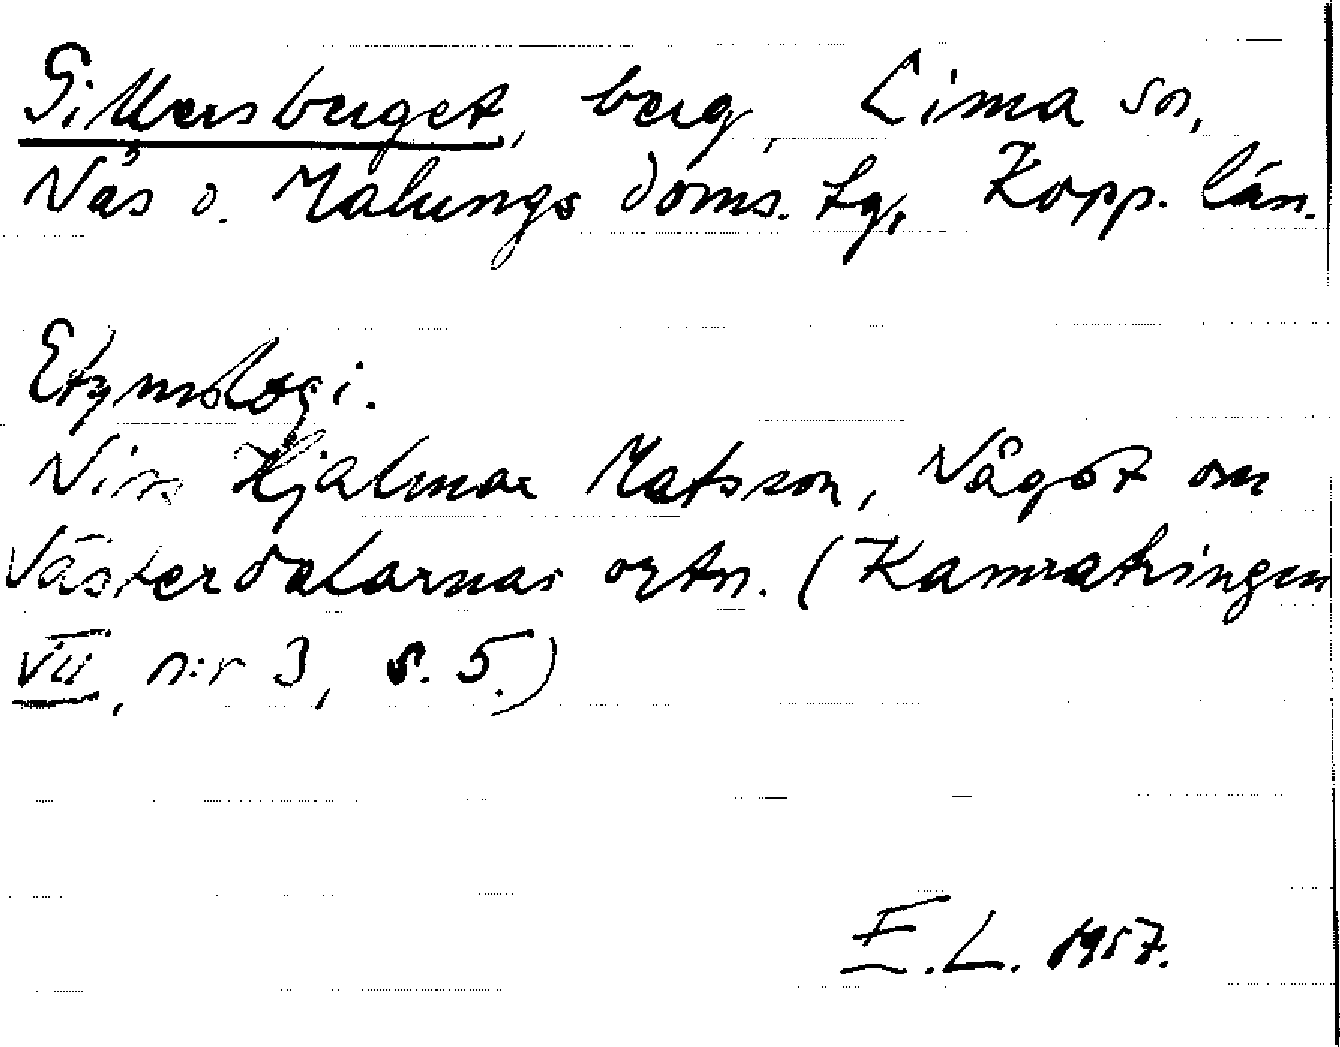 Gillersberget, berg, Lima sn,
Nås o. Malungs doms. tg, Kopp. län.
Etymologi.
Nils Hjalmar Matsson, Något om
Västerdalarnas ortn. (Kamratringen
VII, n:r 3, s. 5.)
E.L. 1957.